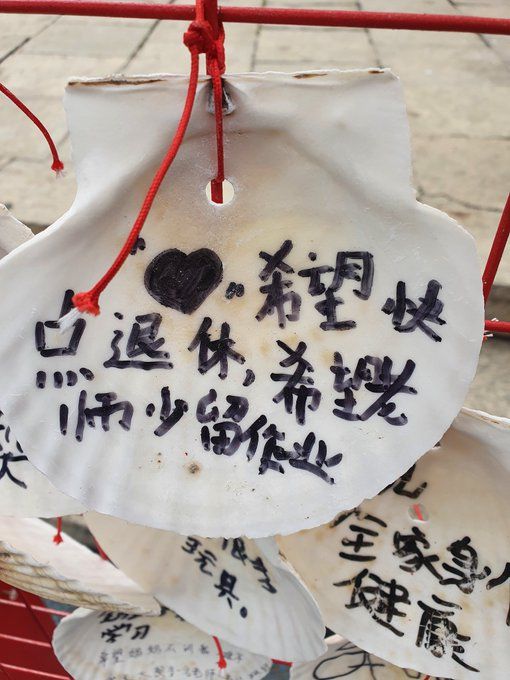 "♥"希望快
点退休,希望老
师少留作业
全家身
健康
玩具。
学习